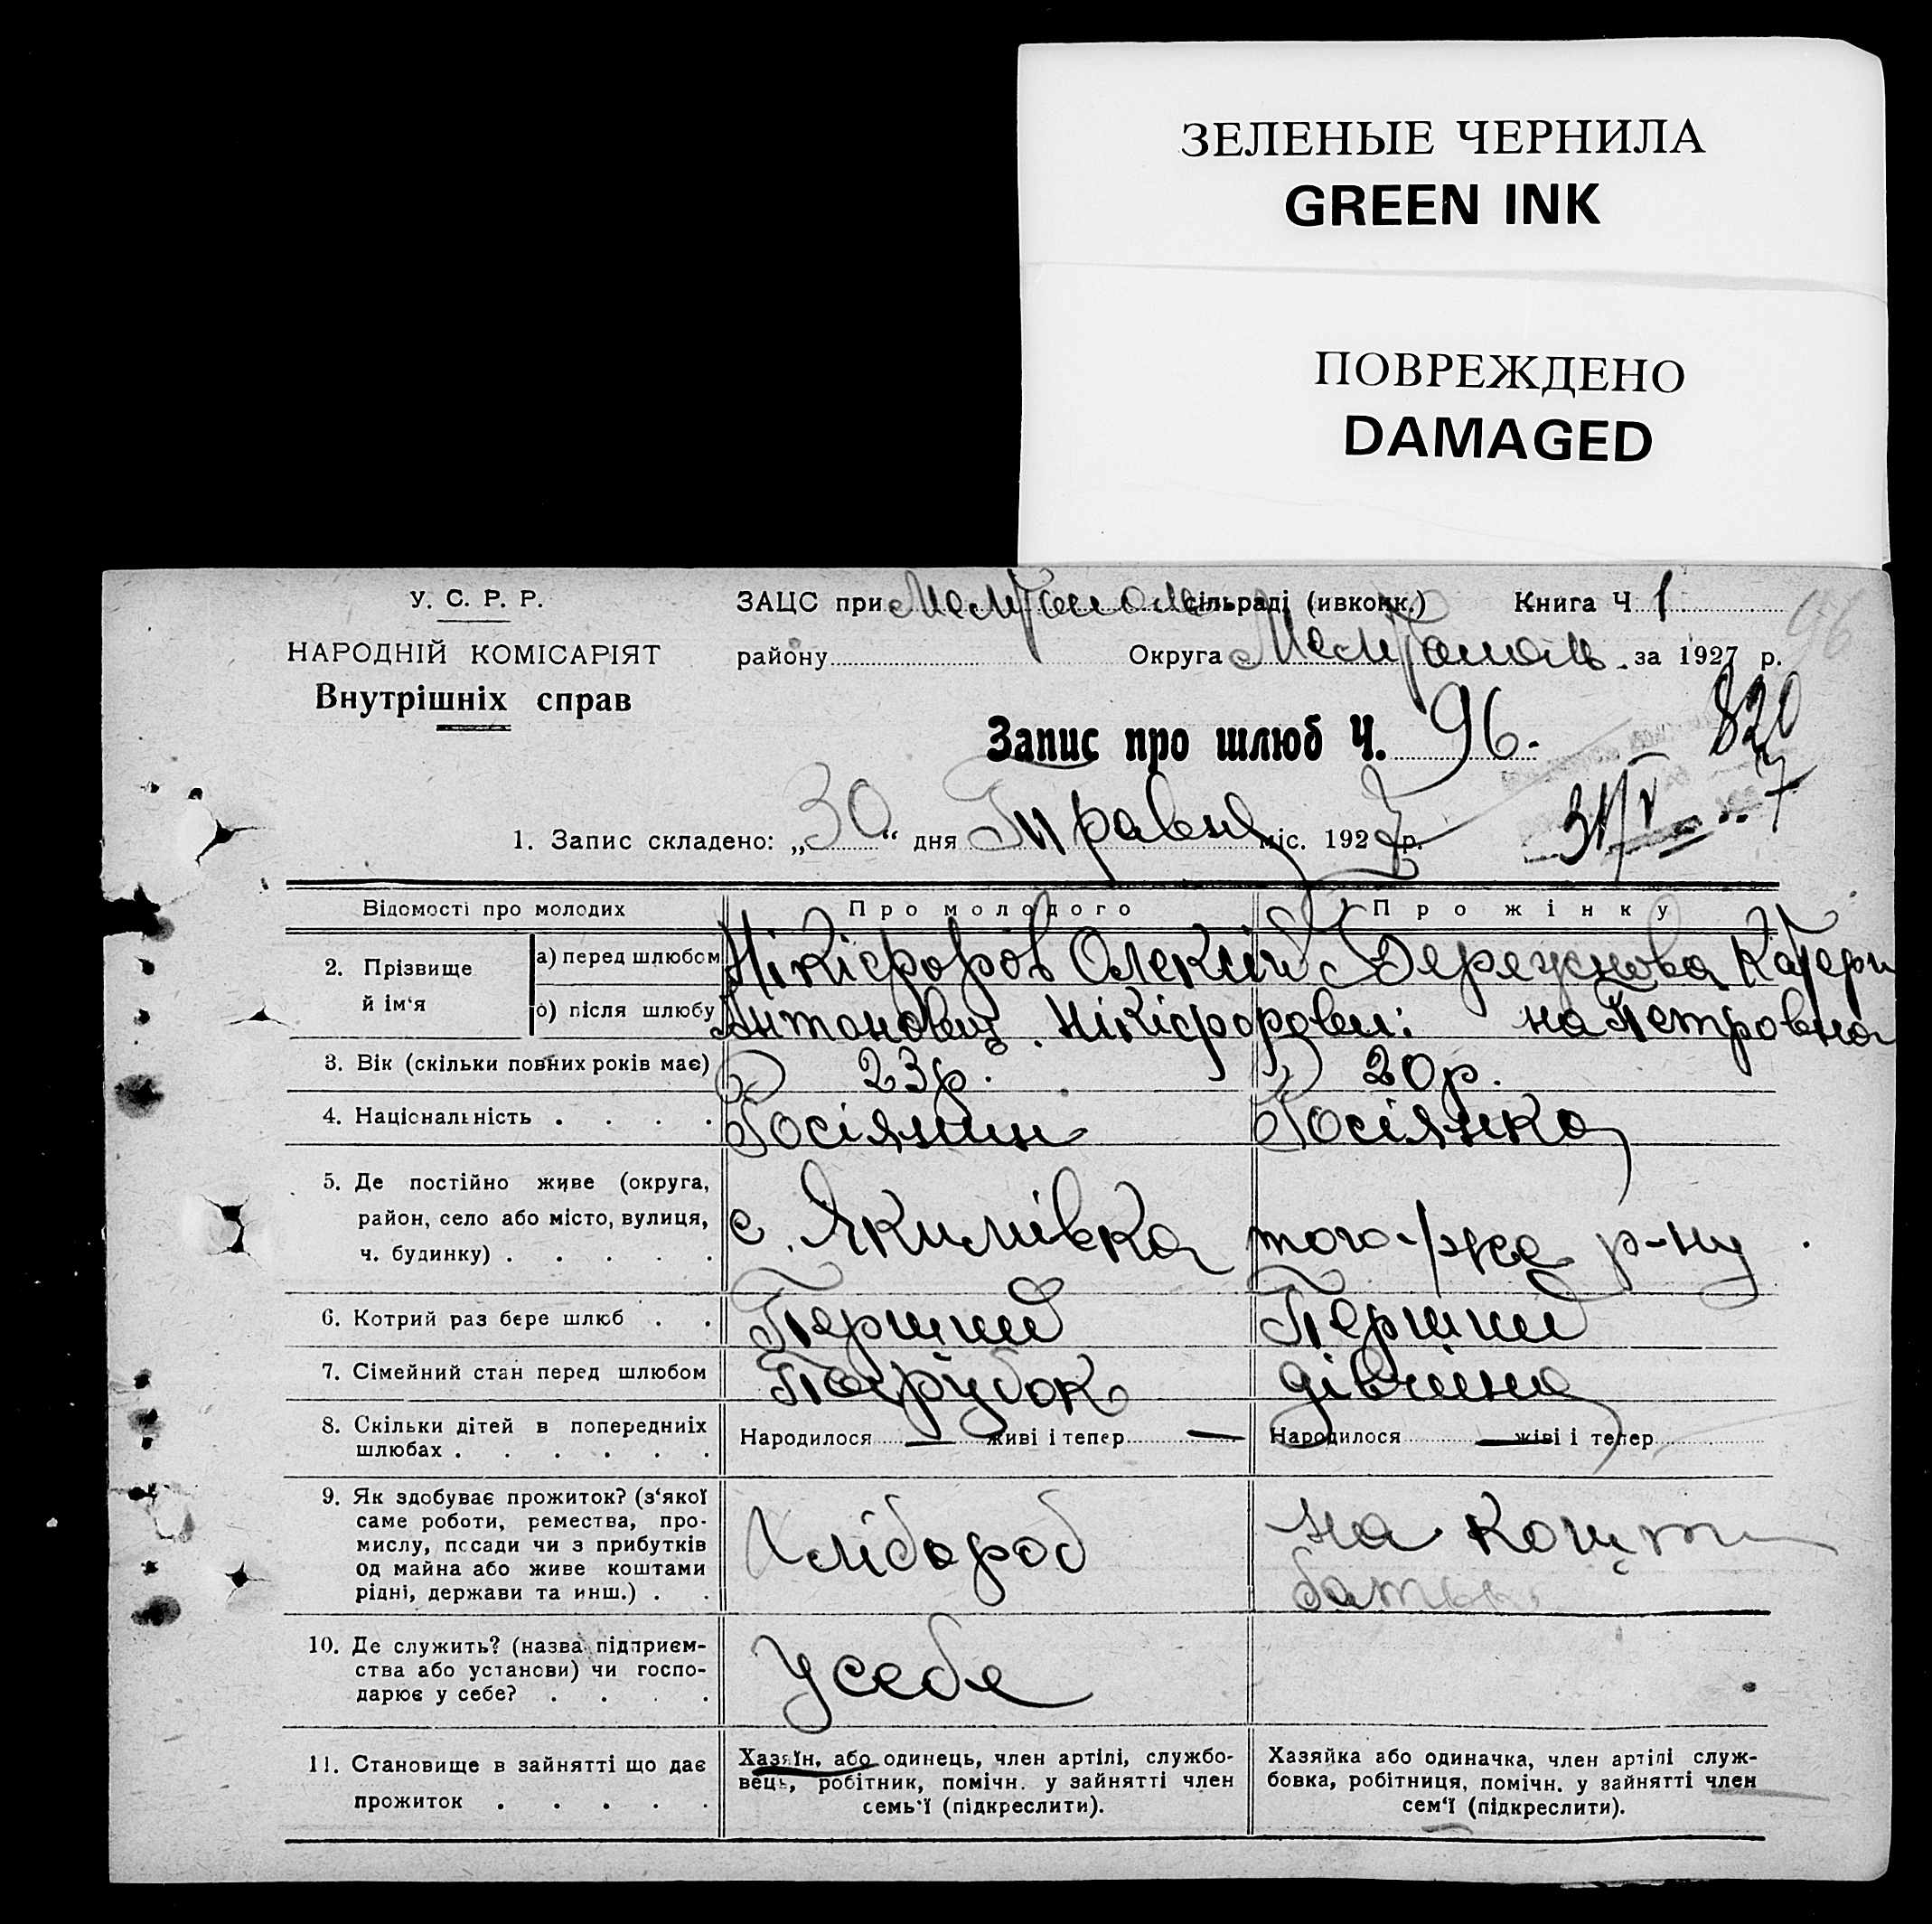 ЗЕЛЕНЫЕ ЧЕРНИЛА
GREEN INK
ПОВРЕЖДЕНО
DAMAGED
У. С. Р. Р.
НАРОДНІЙ КОМІСАРІЯТ
Внутрішніх справ
ЗАЦС при Мелітополь сільраді (ивконк.) Книга Ч 1
96
району Округа Мелітополь за 1927 р.
Запис про шлюб Ч. 96.
820
31/V 7
1. Запис складено: „30“ дня Травня міс. 1927 р.
Відомості про молодих Про молодого Про жінку
2. Прізвище й ім'я
а) перед шлюбом Нікіфоров Олексій Катери
о) після шлюбу Антонович. Нікіфорови: на Петровна
3. Вік (скільки повних років має) 23 р. 20 р.
4. Національність . . . . Росіянин Росіянка
5. Де постійно живе (округа, район, село або місто, вулиця, ч. будинку) . . . . . с. Якимівка того-же р-ну
6. Котрий раз бере шлюб . . Перший Перший
7. Сімейний стан перед шлюбом Парубок дівчина
8. Скільки дітей в попередниіх шлюбах . . . . . . Народилося — живі і тепер — Народилося — живі і тепер
9. Як здобуває прожиток? (з'якої
саме роботи, ремества, про-
мислу, посади чи з прибутків
од майна або живе коштами
рідні, держави та инш.) . .
Хлібороб
на кошти
батьк
10. Де служить? (назва підприєм-
ства або установи) чи госпо-
дарює у себе? . . . .
У себе
11. Становище в зайнятті що дає
прожиток . . . . .
Хазяїн, або одинець, член артілі, службо-
вець, робітник, помічн. у зайнятті член
семь'ї (підкреслити).
Хазяйка або одиначка, член артілі служ-
бовка, робітниця, помічн. у зайнятті член
сем'ї (підкреслити).